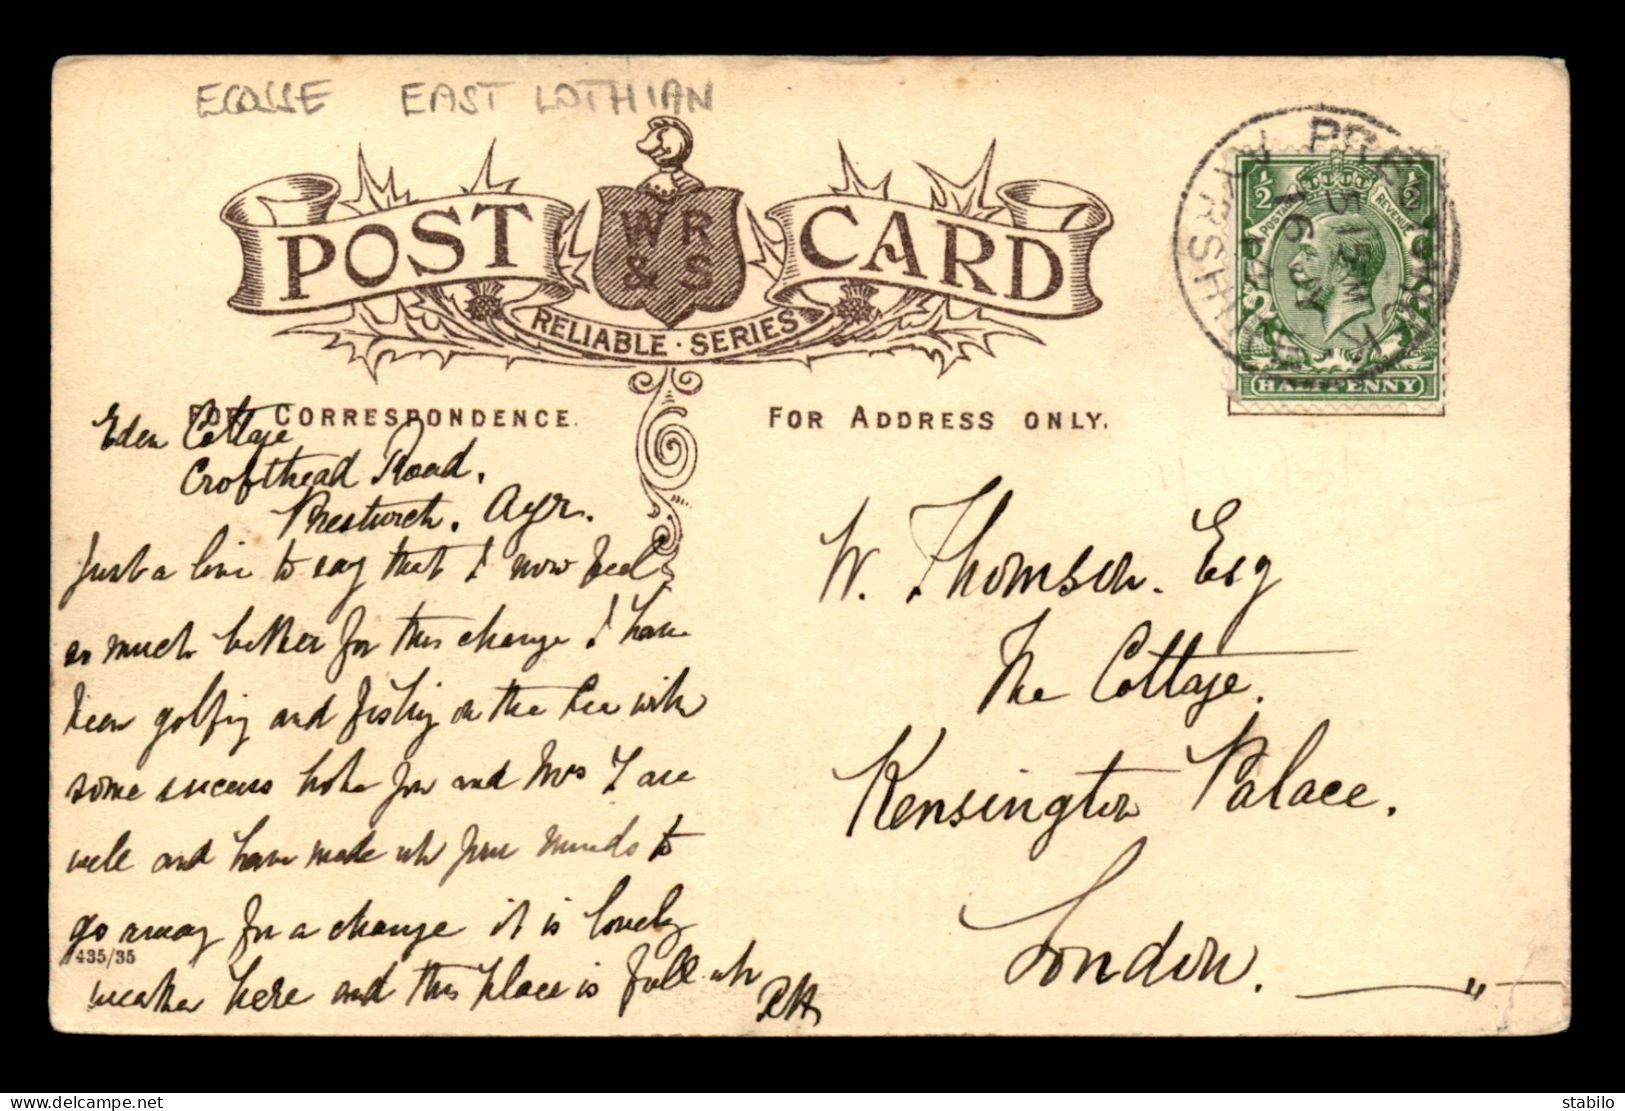 ECOSSE EAST LOTHIAN
POST CARD
WR
& S
RELIABLE · SERIES
FOR CORRESPONDENCE.
FOR ADDRESS ONLY.
PRESTWICK
AYRSHIRE
5 15 PM
16
½ ½
POSTAGE REVENUE
HALFPENNY
Eden Cottage
Crofthead Road,
Prestwick. Ayr.
Just a line to say that I now feel
as much better for this change I have
been golfing and fishing on the sea with
some success hope you and Mrs T are
well and have made up your minds to
go away for a change it is lovely
weather here and this place is full up
435/35
W. Thomson. Esq
The Cottage.
Kensington Palace.
London.
delcampe.net
stabilo